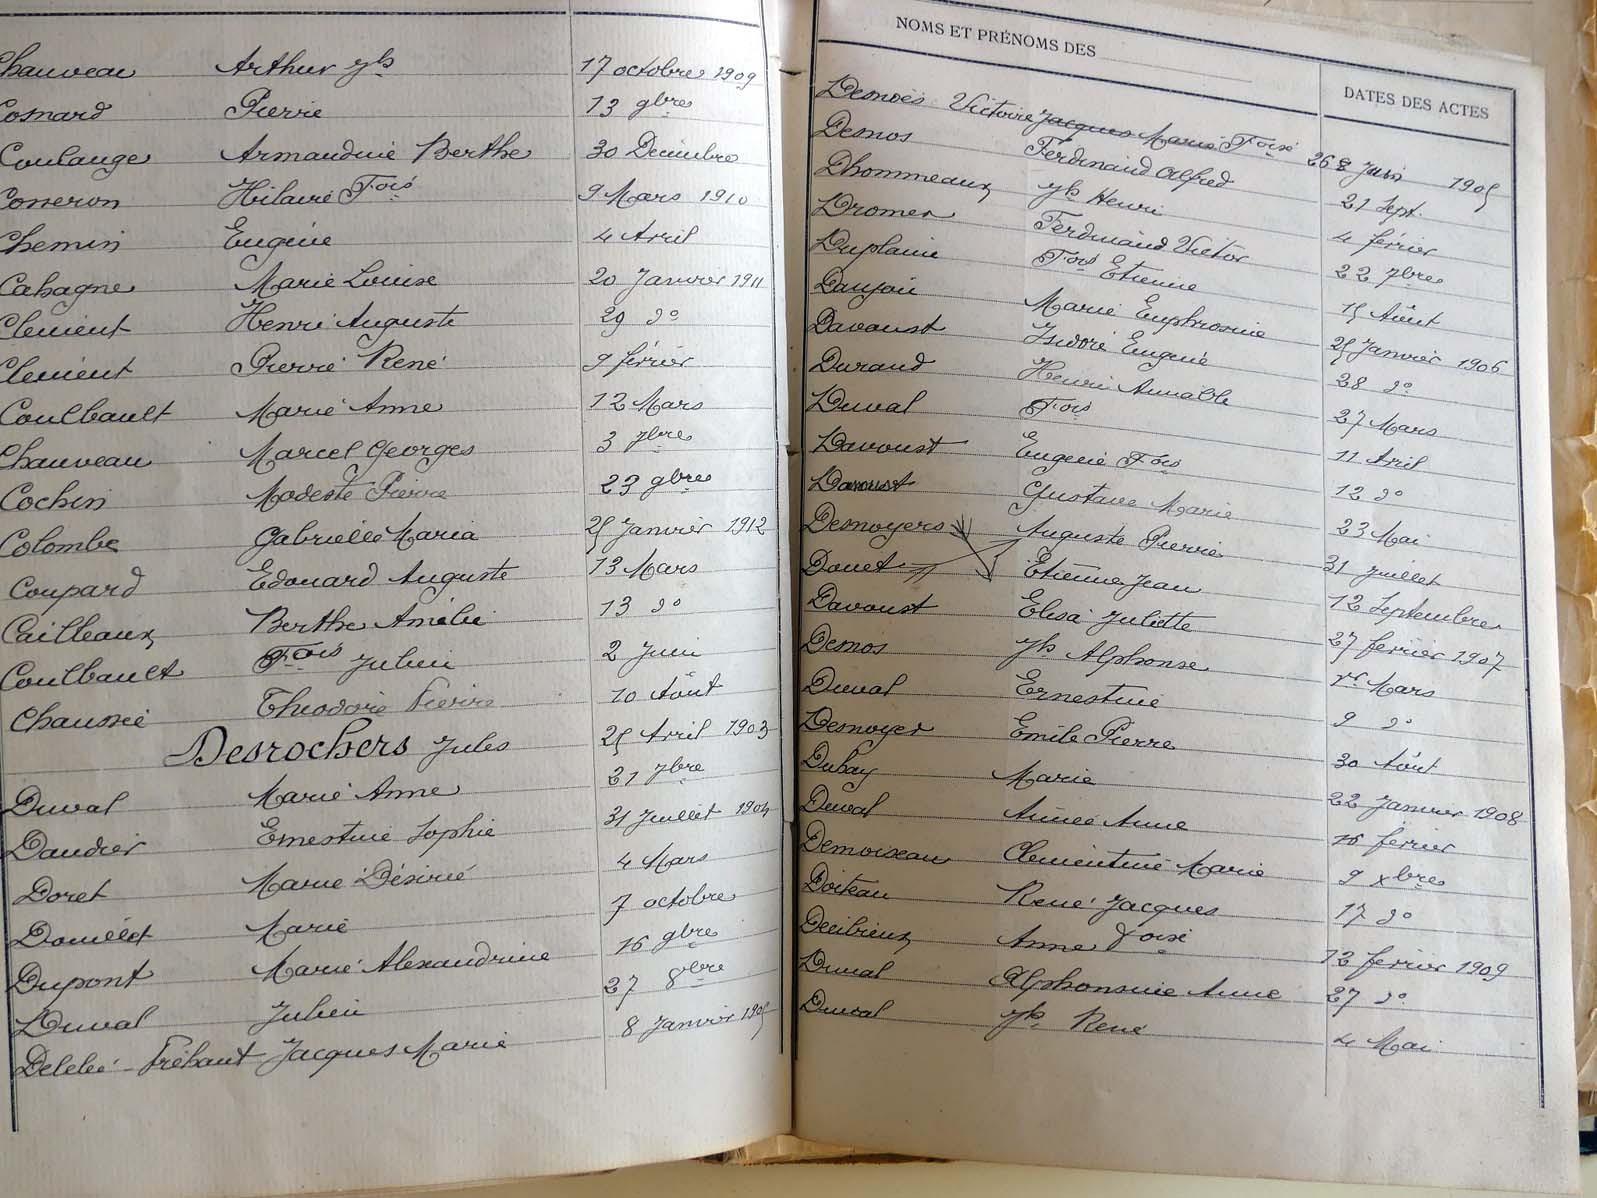 Chauveau Arthur Jh 17 octobre 1909
Cosnard Pierre 13 9bre
Coulange Armandine Berthe 30 Decembre
Cosseron Hilaire Fois 9 Mars 1910
Chemin Eugène 4 Avril
Cahagne Marie Louise 20 Janvier 1911
Clement Henri Auguste 29 do
Clement Pierre René 9 février
Coulbault Marie Anne 12 Mars
Chauveau Marcel Georges 3 7bre
Cochin Modeste Pierre 23 9bre
Colombe Gabrielle Maria 25 Janvier 1912
Coupard Edouard Auguste 13 Mars
Cailleaux Berthe Amélie 13 do
Coulbault Fois Julien 2 Juin
Chaussé Théodore Pierre 10 Août
Desrochers Jules 25 Avril 1903
Duval Marie Anne 21 7bre
Daudier Ernestine Sophie 31 Juillet 1904
Doret Marie Désiré 4 Mars
Douillet Marie 7 octobre
Dupont Marie Alexandrine 16 9bre
Duval Julien 27 8bre
Delelé-Fréhaut Jacques Marie 8 Janvier 1905
NOMS ET PRÉNOMS DES
DATES DES ACTES
Desnoës Victoire Jacques Marie Foise 26 Juin 1905
Desnos Ferdinand Alfred 21 Sept.
Dhommeaux Jh Henri 4 février
Dromer Ferdinand Victor 22 7bre
Duplaine Fois Etienne 15 Août
Daujou Marie Euphrosine 25 Janvier 1906
Davoust Isidore Eugène 28 do
Durand Henri Aimable 27 Mars
Duval Fois 11 Avril
Davoust Eugène Fois 12 do
Davoust Gustave Marie 23 Mai
Desnoyers Auguste Pierre 31 Juillet
Douet Etienne Jean 12 Septembre
Davoust Elisa Juliette 27 février 1907
Desnos Jh Alphonse 1er Mars
Duval Ernestine 9 do
Desnoyer Emile Pierre 30 Août
Dubay Marie 22 Janvier 1908
Duval Aimée Anne 16 février
Demoiseau Clementine Marie 9 Xbre
Doiteau René Jacques 17 do
Decibieux Anne Foise 12 février 1909
Duval Alphonsine Anne 27 do
Duval Jh René 4 Mai